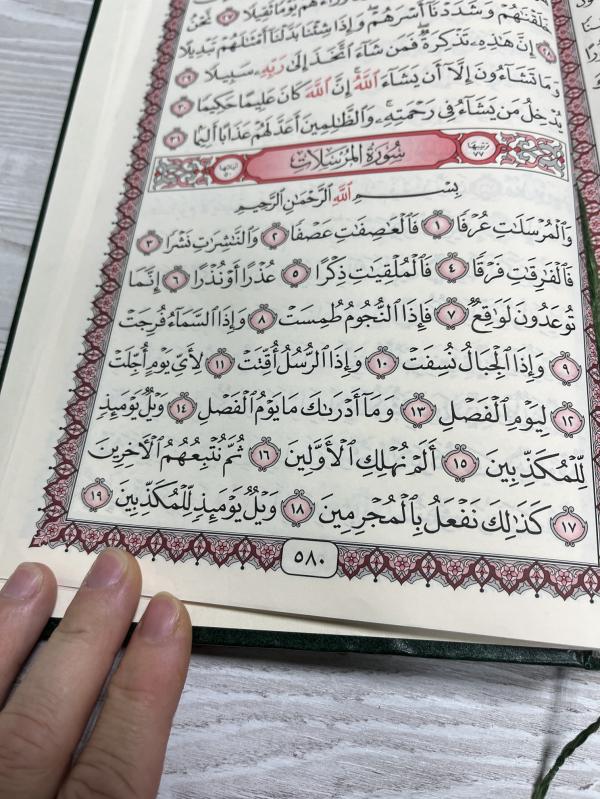 وَرَآءَهُمْ يَوْمًا ثَقِيلًا ٢٧ نَّحْنُ
خَلَقْنَٰهُمْ وَشَدَدْنَآ أَسْرَهُمْ ۖ وَإِذَا شِئْنَا بَدَّلْنَآ أَمْثَٰلَهُمْ تَبْدِيلًا
٢٨ إِنَّ هَٰذِهِۦ تَذْكِرَةٌ ۖ فَمَن شَآءَ ٱتَّخَذَ إِلَىٰ رَبِّهِۦ سَبِيلًا ٢٩
وَمَا تَشَآءُونَ إِلَّآ أَن يَشَآءَ ٱللَّهُ ۚ إِنَّ ٱللَّهَ كَانَ عَلِيمًا حَكِيمًا ٣٠
يُدْخِلُ مَن يَشَآءُ فِى رَحْمَتِهِۦ ۚ وَٱلظَّٰلِمِينَ أَعَدَّ لَهُمْ عَذَابًا أَلِيمًا ٣١
ترتيبها ٧٧ سُورَةُ المُرْسَلَات آياتها ٥٠
بِسْمِ ٱللَّهِ ٱلرَّحْمَٰنِ ٱلرَّحِيمِ
وَٱلْمُرْسَلَٰتِ عُرْفًا ١ فَٱلْعَٰصِفَٰتِ عَصْفًا ٢ وَٱلنَّٰشِرَٰتِ نَشْرًا ٣
فَٱلْفَٰرِقَٰتِ فَرْقًا ٤ فَٱلْمُلْقِيَٰتِ ذِكْرًا ٥ عُذْرًا أَوْ نُذْرًا ٦ إِنَّمَا
تُوعَدُونَ لَوَٰقِعٌ ٧ فَإِذَا ٱلنُّجُومُ طُمِسَتْ ٨ وَإِذَا ٱلسَّمَآءُ فُرِجَتْ
٩ وَإِذَا ٱلْجِبَالُ نُسِفَتْ ١٠ وَإِذَا ٱلرُّسُلُ أُقِّتَتْ ١١ لِأَىِّ يَوْمٍ أُجِّلَتْ
١٢ لِيَوْمِ ٱلْفَصْلِ ١٣ وَمَآ أَدْرَىٰكَ مَا يَوْمُ ٱلْفَصْلِ ١٤ وَيْلٌ يَوْمَئِذٍ
لِّلْمُكَذِّبِينَ ١٥ أَلَمْ نُهْلِكِ ٱلْأَوَّلِينَ ١٦ ثُمَّ نُتْبِعُهُمُ ٱلْءَاخِرِينَ
١٧ كَذَٰلِكَ نَفْعَلُ بِٱلْمُجْرِمِينَ ١٨ وَيْلٌ يَوْمَئِذٍ لِّلْمُكَذِّبِينَ ١٩
٥٨٠